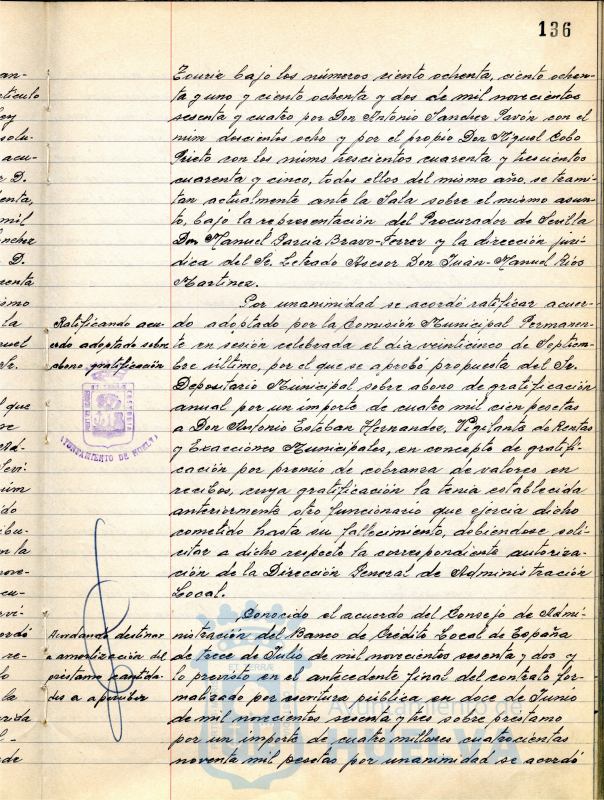 136
an-
rtículo
ey
solu-
acu-
r D.
enta,
mil
ánchez
D.
renta
ismo
la
nuel
Sr.
l que
se
Ad-
Servi
núm
do
ibu-
n la
nove-
cu-
rvi
ordó
re-
lo
la
rvida
l-
de
Zourie bajo los números ciento ochenta, ciento ochen-
ta y uno y ciento ochenta y dos de mil novecientos
sesenta y cuatro por Don Antonio Sanchez Pavón con el
núm doscientos ocho y por el propio Don Miguel Cobo
Prieto con los números trescientos cuarenta y trescientos
cuarenta y cinco, todos ellos del mismo año, se trami-
tan actualmente ante la Sala sobre el mismo asun-
to, bajo la representación del Procurador de Sevilla
Don Manuel García Bravo-Ferrer y la dirección jurí-
dica del Sr. Letrado Asesor Don Juan-Manuel Ríos
Martínez.
Ratificando acu-
erdo adoptado sobre
abono gratificación
Por unanimidad se acordó ratificar acuer-
do adoptado por la Comisión Municipal Permanen-
te en sesión celebrada el día veinticinco de Septiem-
bre último, por el que se aprobó propuesta del Sr.
Depositario Municipal sobre abono de gratificación
anual por un importe de cuatro mil cien pesetas
a Don Antonio Esteban Hernandez, Vigilante de Rentas
y Exacciones Municipales, en concepto de gratifi-
cación por premio de cobranza de valores en
recibos, cuya gratificación la tenía establecida
anteriormente otro funcionario que ejercía dicho
cometido hasta su fallecimiento, debiéndose soli-
citar a dicho respecto la correspondiente autoriza-
ción de la Dirección General de Administración
Local.
AYUNTAMIENTO DE HUELVA
Acordando destinar
a amortización del
préstamo cantida-
des a percibir
Conocido el acuerdo del Consejo de Admi-
nistración del Banco de Crédito Local de España
de trece de Julio de mil novecientos sesenta y dos y
lo previsto en el antecedente final del contrato for-
malizado por escritura pública en doce de Junio
de mil novecientos sesenta y tres sobre préstamo
por un importe de cuatro millones cuatrocientas
noventa mil pesetas por unanimidad se acordó
Ayuntamiento de
HUELVA